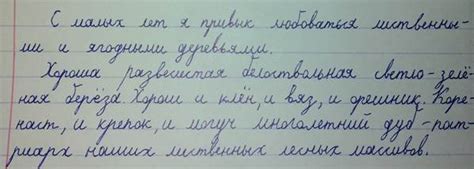 С малых лет я привык любоваться лиственны-
ми и ягодными деревьями.
Хороша развесистая белоствольная светло-зелё-
ная берёза. Хорош и клён, и вяз, и орешник. Коре-
наст, и крепок, и могуч многолетний дуб-пат-
риарх наших лиственных лесных массивов.